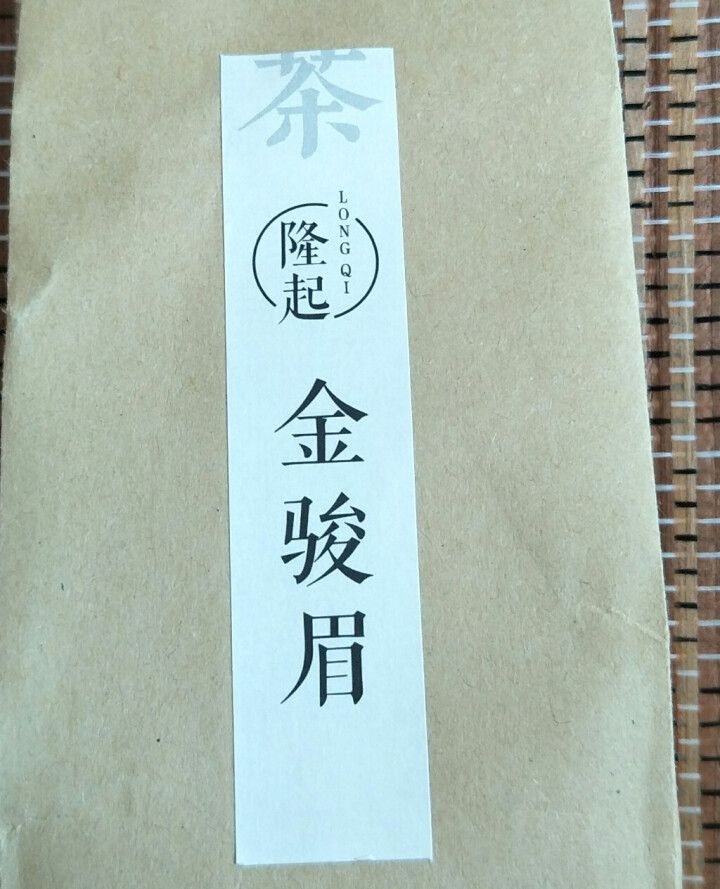 茶
隆起
LONG QI
金骏眉